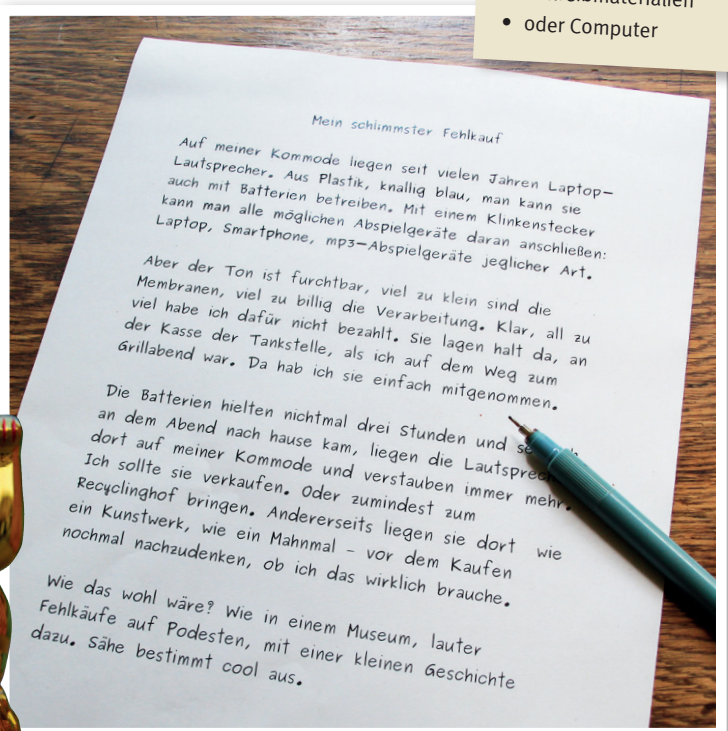 oder Computer
Mein schlimmster Fehlkauf
Auf meiner Kommode liegen seit vielen Jahren Laptop-
Lautsprecher. Aus Plastik, knallig blau, man kann sie
auch mit Batterien betreiben. Mit einem Klinkenstecker
kann man alle möglichen Abspielgeräte daran anschließen:
Laptop, Smartphone, mp3-Abspielgeräte jeglicher Art.
Aber der Ton ist furchtbar, viel zu klein sind die
Membranen, viel zu billig die Verarbeitung. Klar, all zu
viel habe ich dafür nicht bezahlt. Sie lagen halt da, an
der Kasse der Tankstelle, als ich auf dem Weg zum
Grillabend war. Da hab ich sie einfach mitgenommen.
Die Batterien hielten nichtmal drei Stunden und
an dem Abend nach hause kam, liegen die
dort auf meiner Kommode und verstauben immer mehr.
Ich sollte sie verkaufen. Oder zumindest zum
Recyclinghof bringen. Andererseits liegen sie dort wie
ein Kunstwerk, wie ein Mahnmal - vor dem Kaufen
nochmal nachzudenken, ob ich das wirklich brauche.
Wie das wohl wäre? Wie in einem Museum, lauter
Fehlkäufe auf Podesten, mit einer kleinen Geschichte
dazu. Sähe bestimmt cool aus.